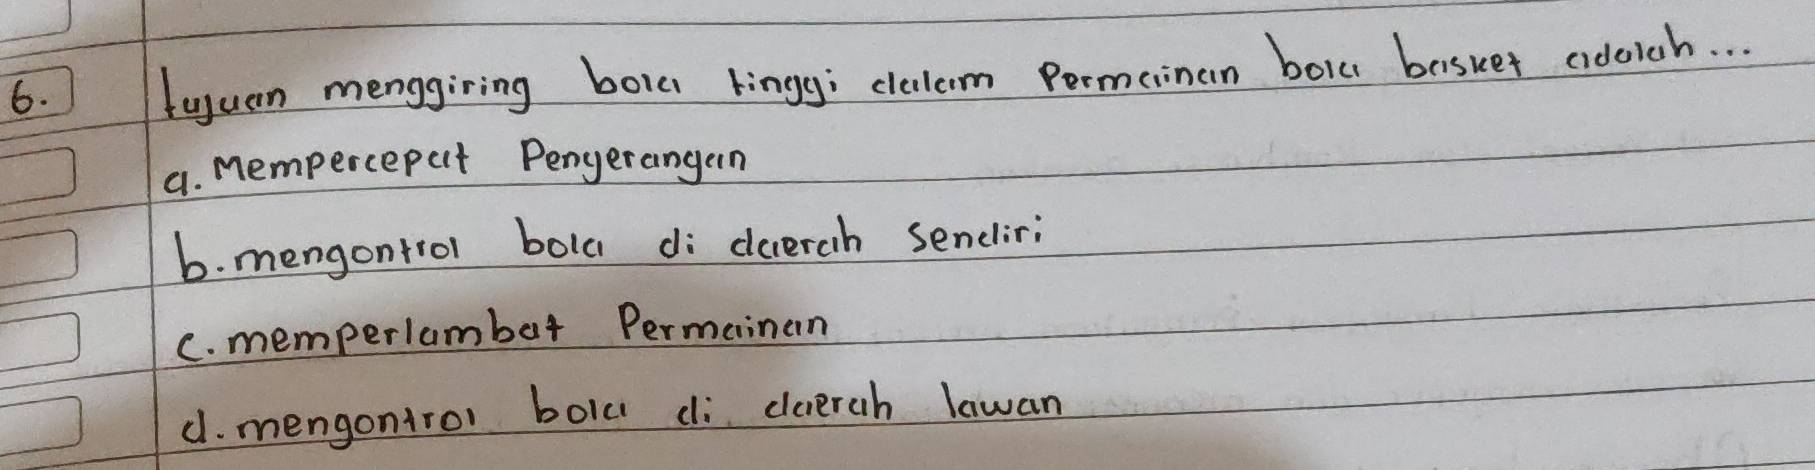 6. tujuan menggiring bola tinggi dalam Permainan bola basket adalah...
a. Mempercepat Penyerangan
b. mengontrol bola di daerah sendiri
c. memperlambat Permainan
d. mengontrol bola di daerah lawan